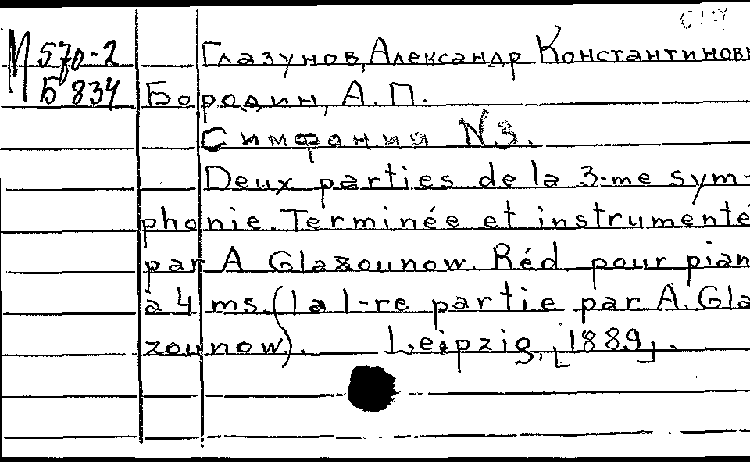 М 570-2 Глазунов, Александр Константинови
Б 834 Бородин, А.П.
Симфония N3.
Deux parties de la 3-me sym-
phonie. Terminée et instrumenté
par A Glazounow. Réd pour pian
à 4 ms. (la 1-re partie par A. Gla
zounow). Leipzig, [1889].